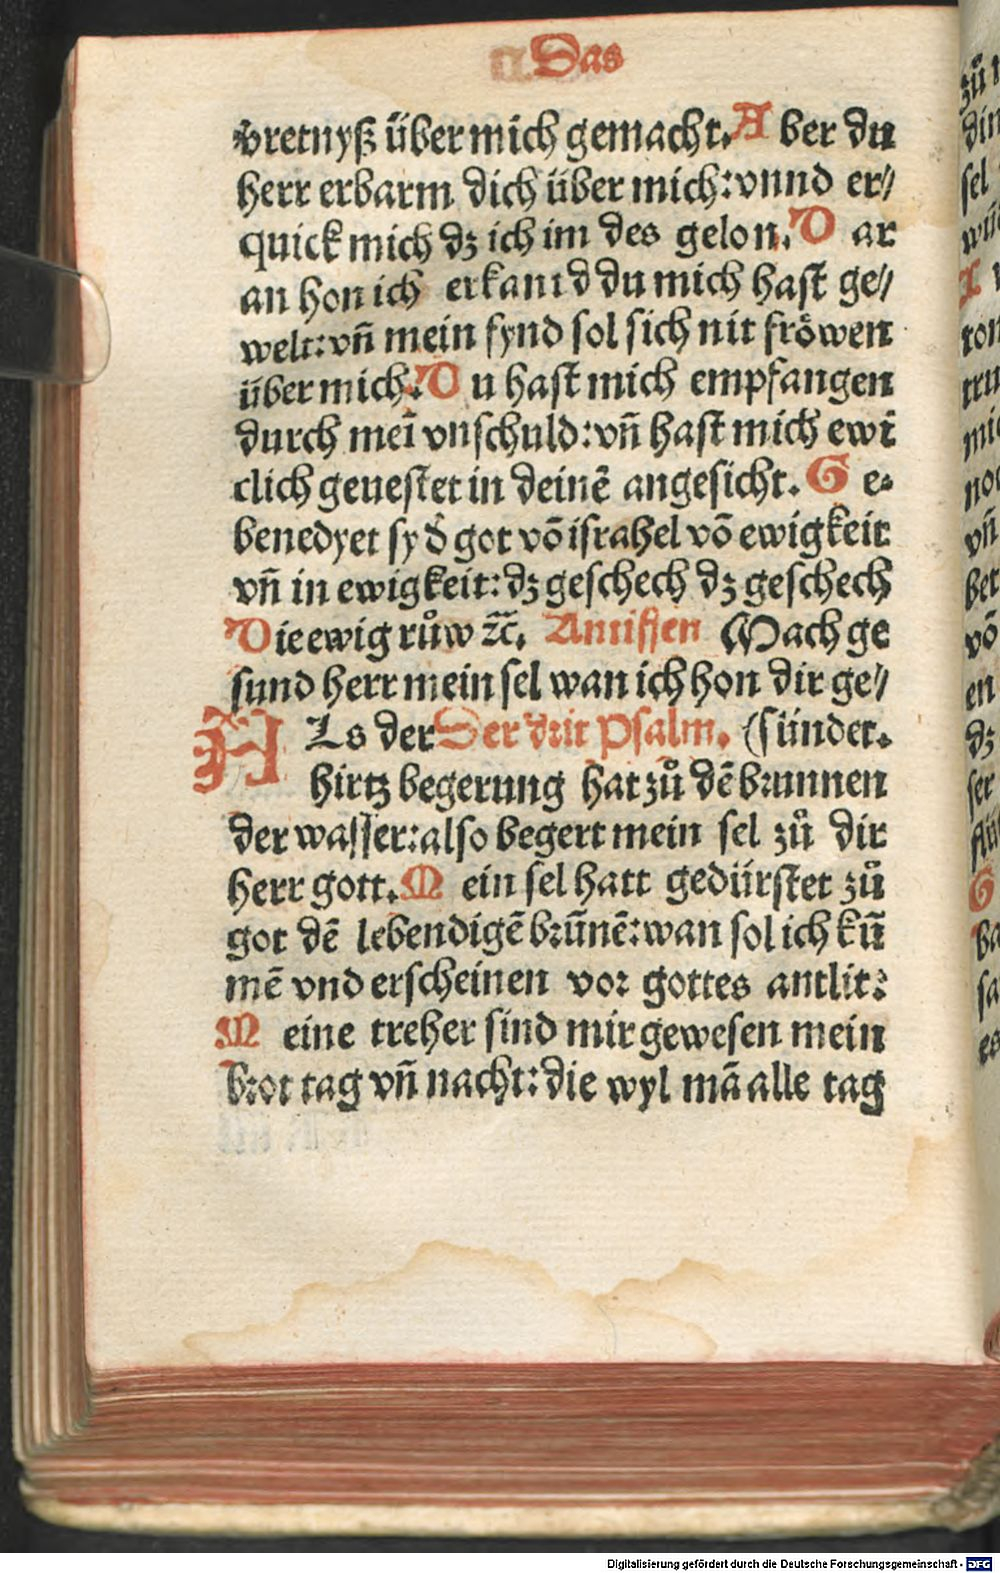 Das
bretnyß über mich gemacht. Aber du
herr erbarm dich über mich: vnnd er⸗
quick mich dz ich im des gelon. Dar
an hon ich erkant d du mich hast ge⸗
welt: vn̄ mein fynd sol sich nit fröwen
über mich. Du hast mich empfangen
durch meī vnschuld: vn̄ hast mich ewi
clich geuestet in deinē angesicht. Ge⸗
benedyet sy d̛ got vō israhel vō ewigkeit
vn̄ in ewigkeit: dz geschech dz geschech
Die ewig růw ⁊c̄. Antiffen Mach ge
sund herr mein sel wan ich hon dir ge⸗
ALs der Der drit Psalm. (sünder.
hirtz begerung hat zů dē brunnen
der wasser: also begert mein sel zů dir
herr gott. Mein sel hatt gedürstet zů
got dē lebendigē brūnē: wan sol ich kū
mē vnd erscheinen vor gottes antlit:
Meine treher sind mir gewesen mein
brot tag vn̄ nacht: die wyl mā alle tag
Digitalisierung gefördert durch die Deutsche Forschungsgemeinschaft - DFG